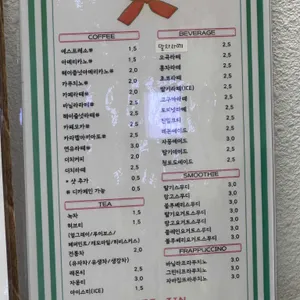 COFFEE
에스프레소* 1,5
아메리카노* 1,5
헤이즐넛아메리카노* 2,0
카푸치노* 2,0
카페라떼* 2,0
바닐라라떼* 2,5
헤이즐넛라떼* 2,5
카페모카* 2,5
카라멜마끼아또* 2,5
연유라떼* 3,0
더치커피 2,0
더치라떼 2,5
* 샷 추가
* 디카페인 가능
TEA
녹차 1,5
허브티
전통차 2,0
(유자차/유생좌/생강차)
레몬티 2,5
자몽티 3,0
아이스티(ICE) 1,5
BEVERAGE
말차라떼 2,5
오곡라떼 2,5
홍차라떼 2,5
초코라떼 2,5
딸기라떼(ICE) 2,5
고구마라떼 2,5
토피넛라떼 2,5
레몬에이드 2,5
자몽에이드 2,5
딸기에이드 2,5
청포도에이드 2,5
SMOOTHIE
딸기스무디 3,0
망고스무디 3,0
블루베리스무디 3,0
딸기요거트스무디 3,0
망고요거트스무디 3,0
플레인요거트스무디 3,0
블루베리요거트스무디 3,0
FRAPPUCCINO
바닐라프라푸치노 3,0
그린티프라푸치노 3,0
자바칩프라푸치노 3,0